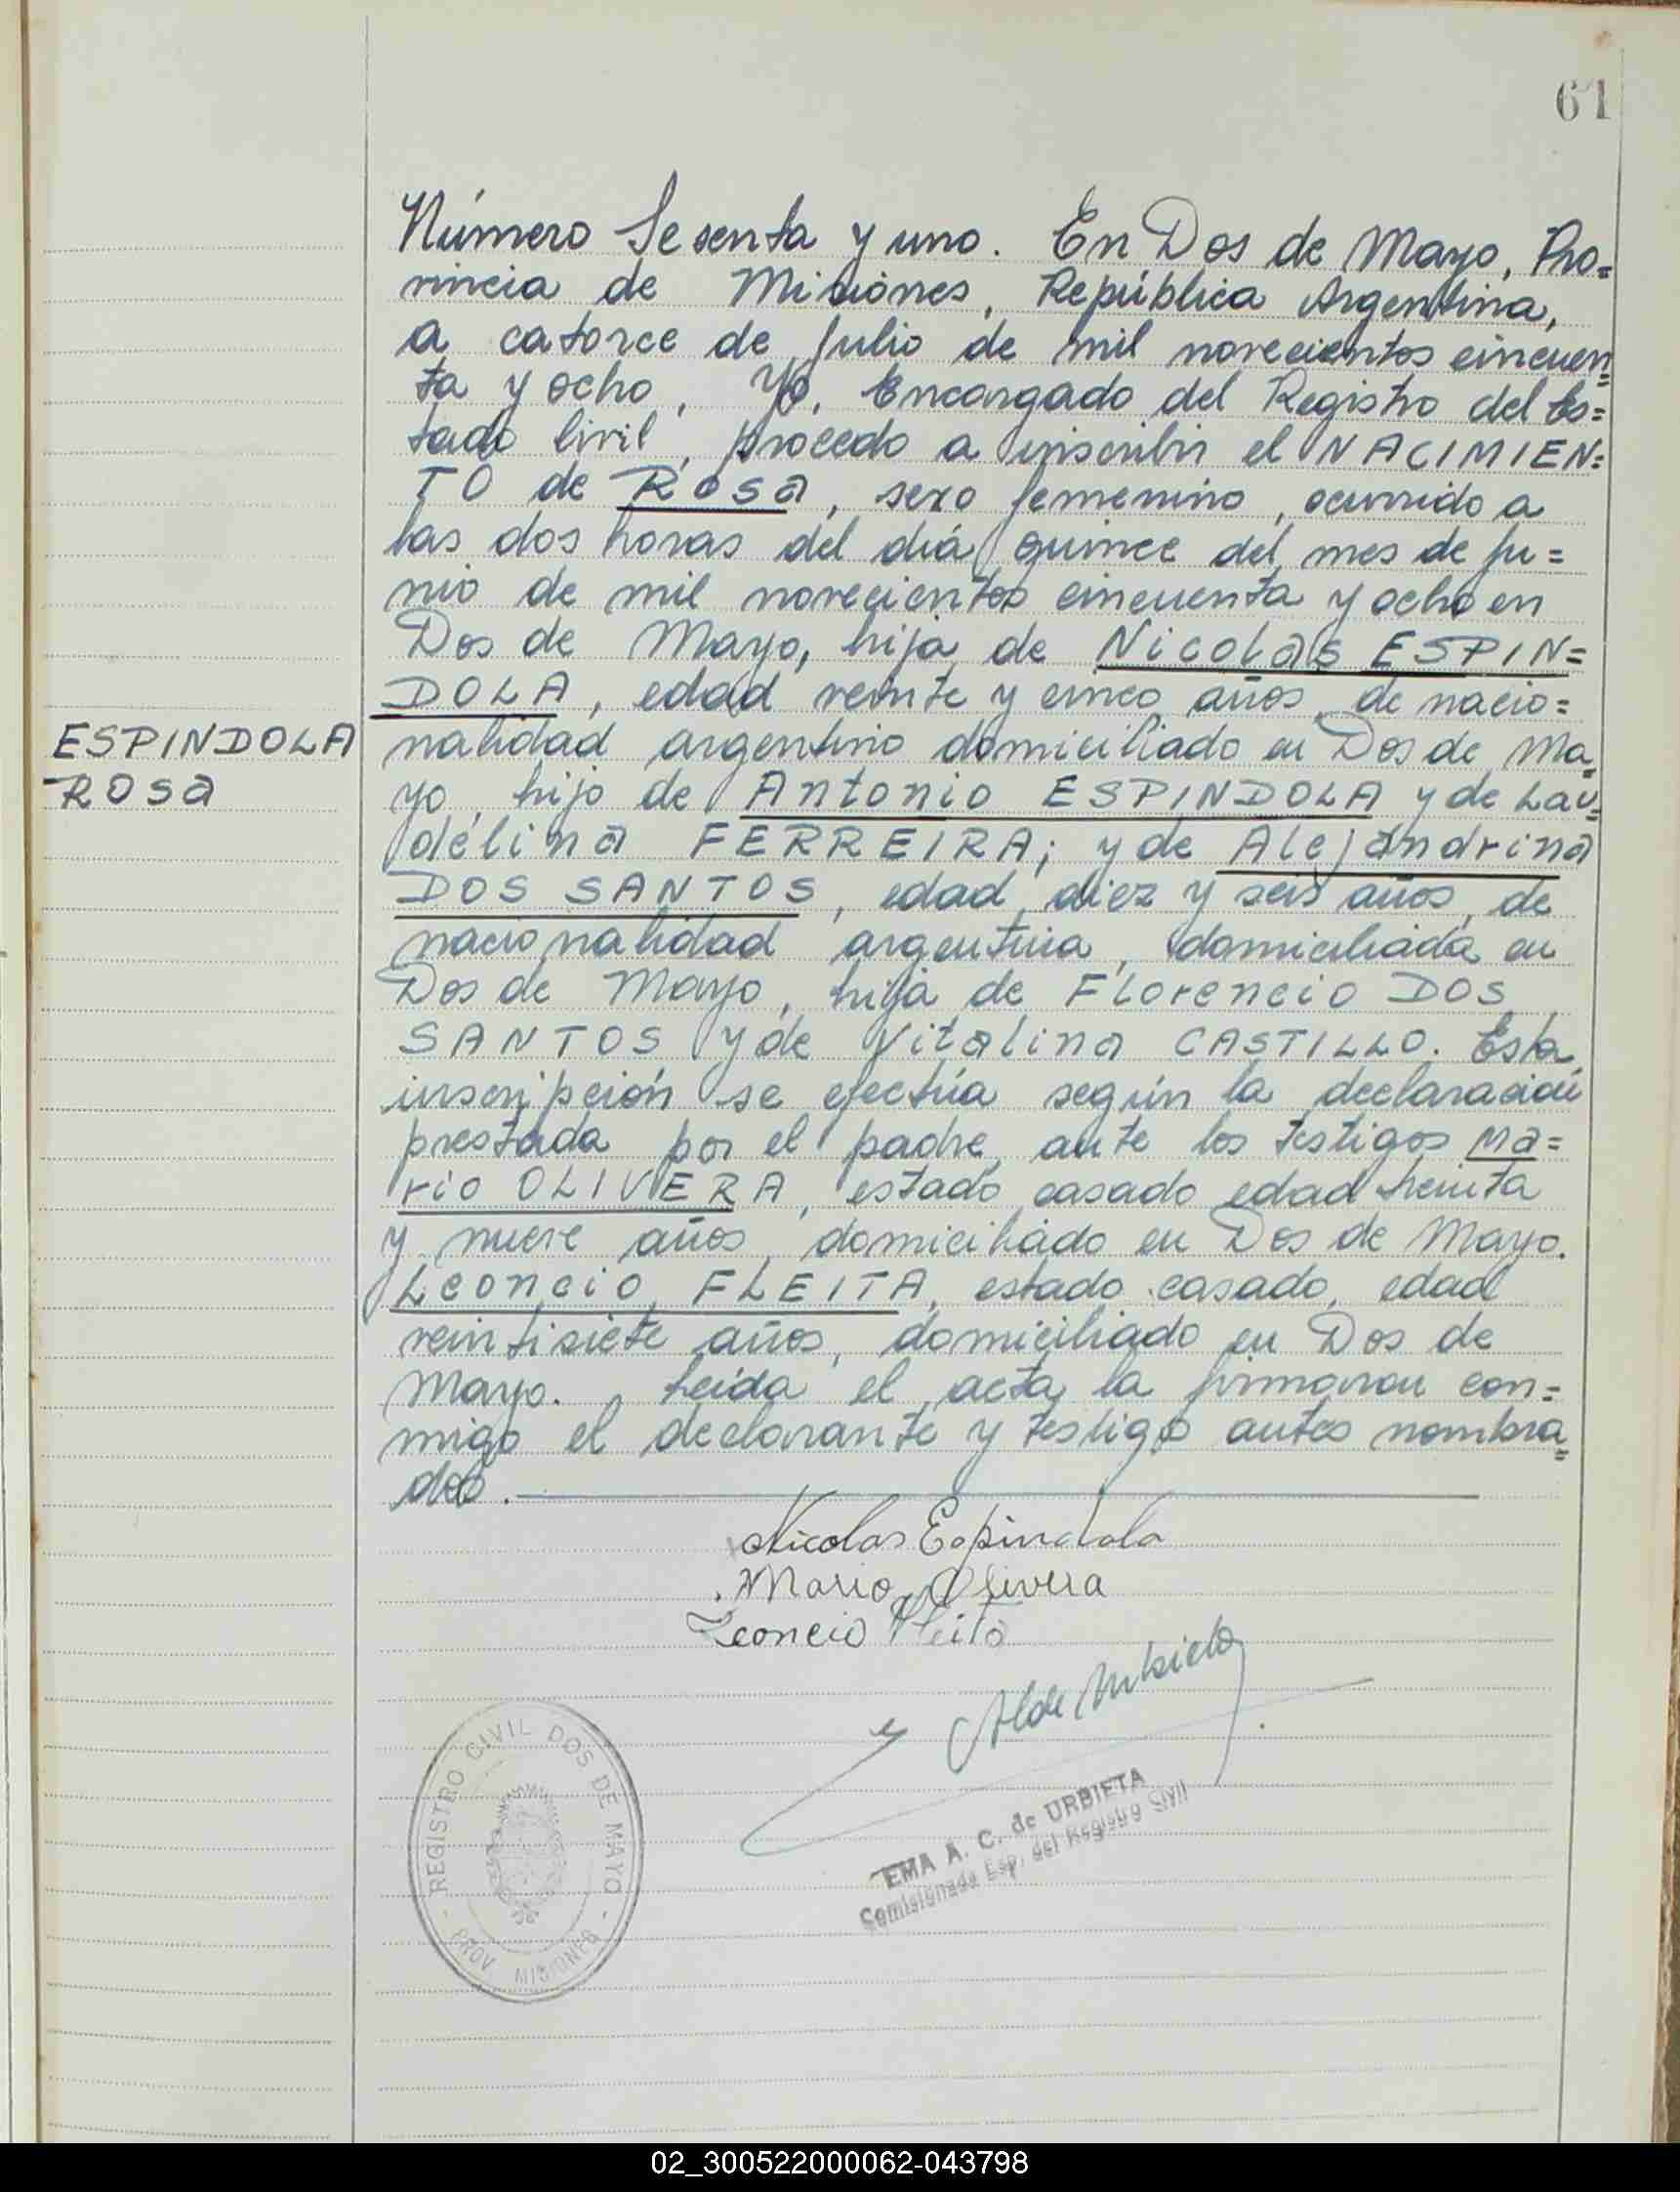 61
Número Sesenta y uno. En Dos de Mayo, Pro=
vincia de Misiones, República Argentina,
a catorce de Julio de mil novecientos cincuen=
ta y ocho, Yo, Encargado del Registro del Es=
tado Civil, procedo a inscribir el NACIMIEN=
TO de Rosa, sexo femenino, ocurrido a
las dos horas del día quince del mes de Ju=
nio de mil novecientos cincuenta y ocho en
Dos de Mayo, hija de Nicolás ESPIN=
DOLA, edad veinte y cinco años, de nacio=
ESPINDOLA
Rosa
nalidad argentino domiciliado en Dos de Ma=
yo, hijo de Antonio ESPINDOLA y de Lau=
delina FERREIRA; y de Alejandrina
DOS SANTOS, edad diez y seis años, de
nacionalidad argentina, domiciliada en
Dos de Mayo, hija de Florencio DOS
SANTOS y de Vitalina CASTILLO. Esta
inscripción se efectúa según la declaración
prestada por el padre, ante los testigos Ma=
rio OLIVERA, estado casado edad treinta
y nueve años, domiciliado en Dos de Mayo.
Leoncio FLEITA, estado casado, edad
veintisiete años, domiciliado en Dos de
Mayo. Leída el acta la firmaron con=
migo el declarante y testigo antes nombra=
dos.
Nicolas Espindola
Mario Olivera
Leoncio Fleita
REGISTRO CIVIL DOS DE MAYO
PROV. MISIONES
EMA A. C. de URBIETA
Comisionada Esp. del Registro Civil
02_300522000062-043798